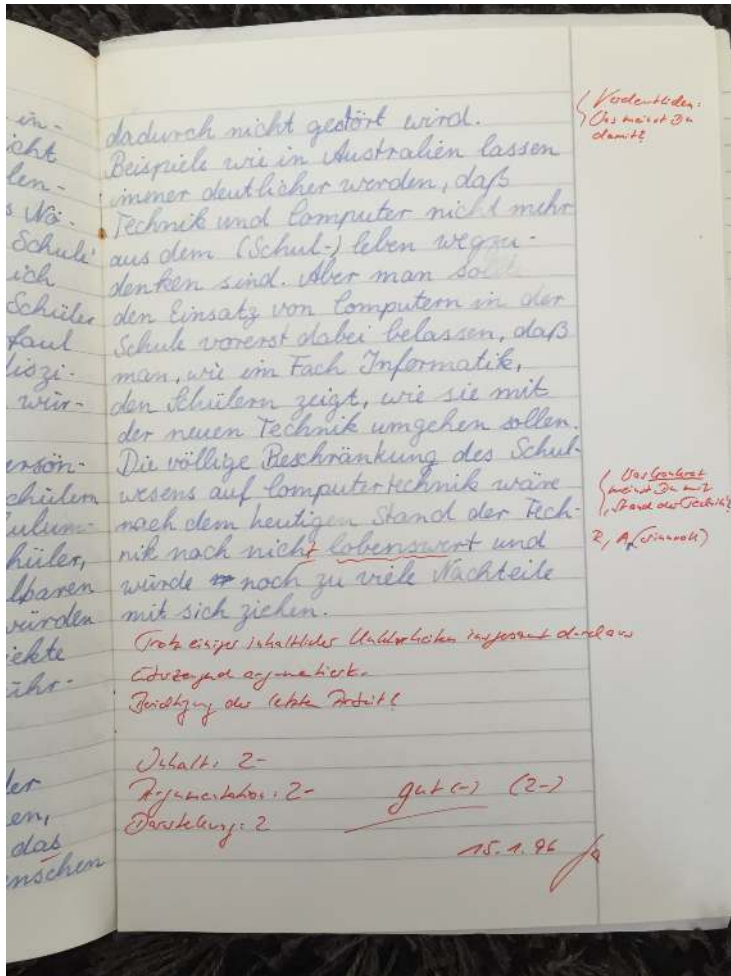 in-
icht
len-
s Wö-
Schule'
ich
Schüler
faul
liszi-
wür-
ersön-
chülern
ulum-
hüler,
lbaren
würden
ekte
ühr-
ler
en,
das
enschen
dadurch nicht gestört wird.
Beispiele wie in Australien lassen
immer deutlicher werden, daß
Technik und Computer nicht mehr
aus dem (Schul-) leben wegzu-
denken sind. Aber man sollte
den Einsatz von Computern in der
Schule vorerst dabei belassen, daß
man, wie im Fach Informatik,
den Schülern zeigt, wie sie mit
der neuen Technik umgehen sollen.
Die völlige Beschränkung des Schul-
wesens auf Computertechnik wäre
nach dem heutigen Stand der Tech-
nik noch nicht lobenswert und
würde noch zu viele Nachteile
mit sich ziehen.
Trotz einiger inhaltlicher Unklarheiten insgesamt durchaus
überzeugend argumentiert.
Berichtigung der letzten Arbeit!
Inhalt: 2-
Argumentation: 2-
gut (-) (2-)
Darstellung: 2
15.1.96
Verdeutlichen:
Was meinst Du
damit?
Was konkret
meinst Du mit
"Stand der Technik"?
R, A